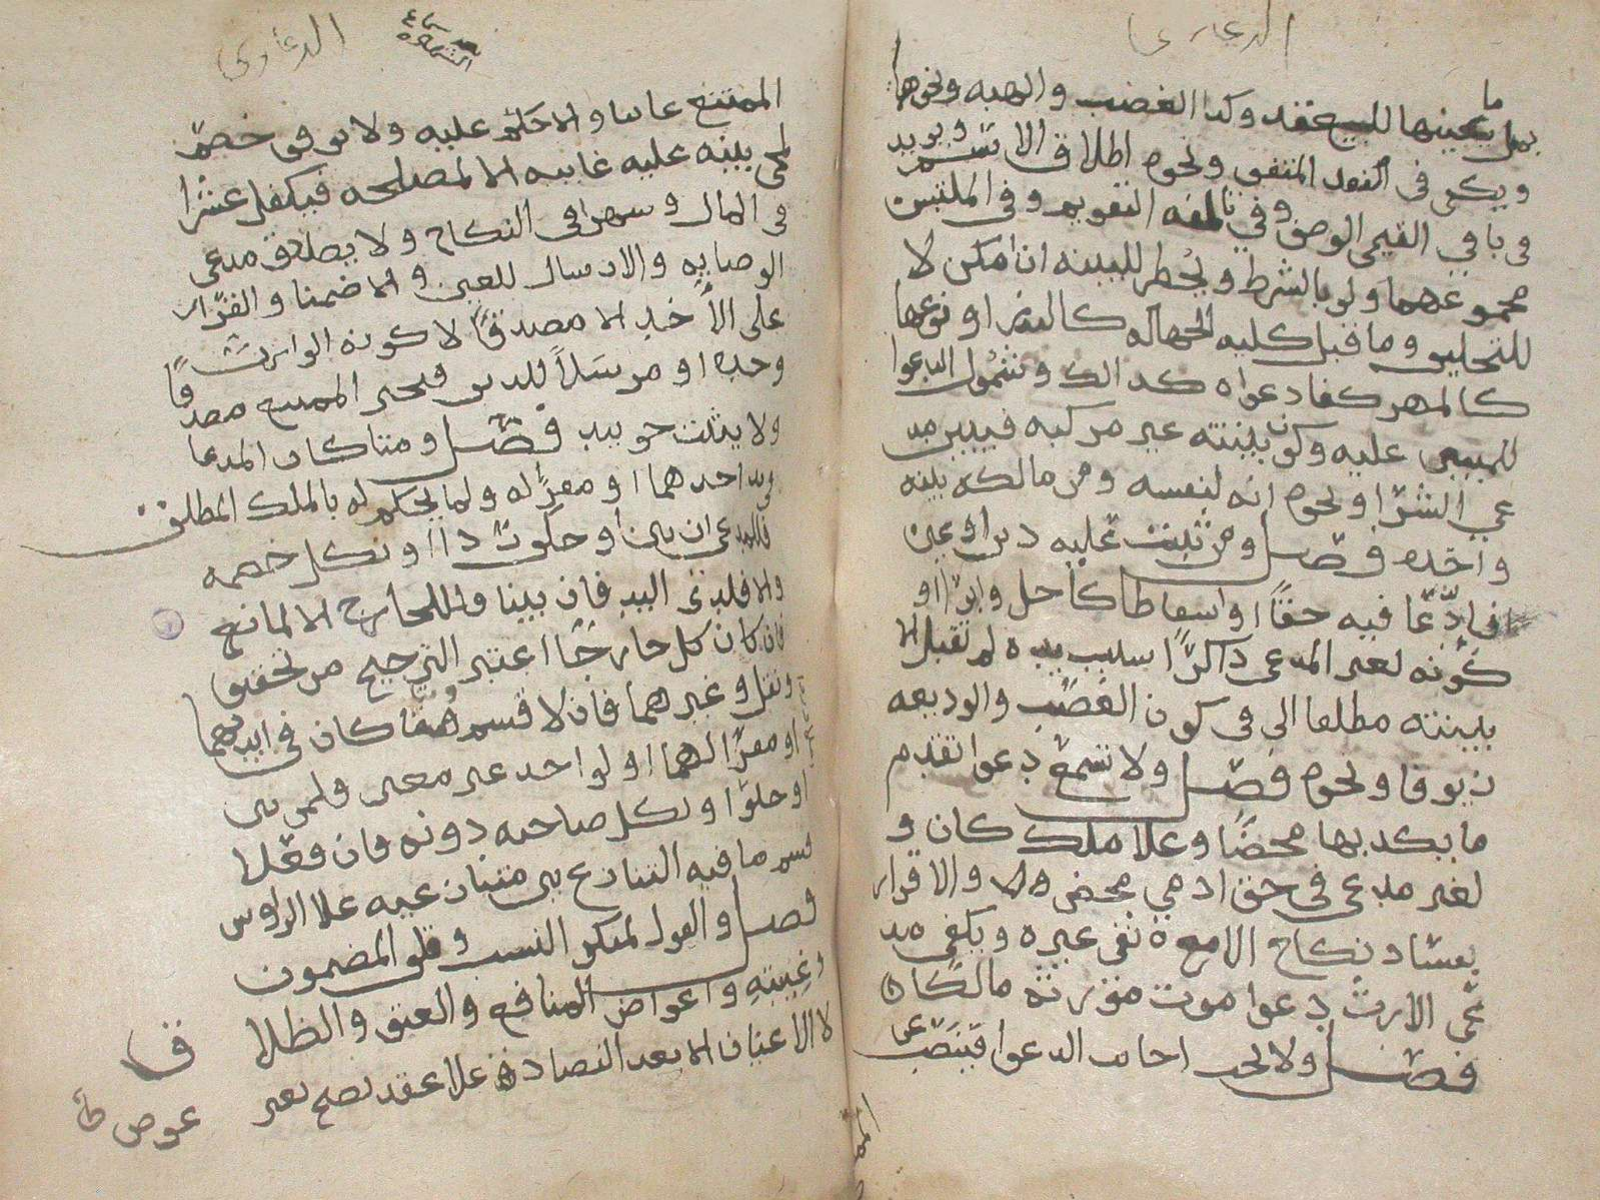 الدعاوى
ما
بمل يعينها للبيع عقد وكذا الغضب والهبه ونحوها
ويكفى فى النقد المتفق ونحوه اطلاق الاسم ويزيد
فى باقي القيمى الوصف وفي تالفه التقويم وفى الملتبس
مجموعهما ولو بالشرط ويحضر للبينه ان امكن لا
للتحليف وما قبل كليه الجهاله كالنذر او نوعها
كالمهر كفا دعواه كذالك وشمول الدعوا
للمبين عليه وكون بينته غير مركبه فيبين مد
عي الشرا ونحوه انه لنفسه ومن مالكه بينه
واحده فصل ومن ثبت عليه دين او عين
فادّعا فيه حقًا او اسقاطا كأجل وابرا او
كونه لغير المدعى ذاكرًا سبب يده لم تقبل الا
ببينته مطلقا الي فى كون الغصب والوديعه
زيوفا ونحوه فصل ولا تسمع دعوا تقدم
ما يكذبها محضًا وعلا ملك كان و
لغير مدعى فى حق ادمي محض ولا والاقرار
بفساد نكاح الامع نفى غيره ويكفى مد
عى الارث دعوا موت مورثه مالكًا
فصل ولا يجب اجابت الدعوا فينصب عن
الدعاوى
الممتنع غايبا والا حكم عليه ولا يوقف خصم
لمجى بينه عليه غايبه الا لمصلحه فيكفل عشرا
فى المال وشهرا فى النكاح ولا يصدق مدعى
الوصايه والارسال للعين والا ضمنا والقرار
على الأخذ الا مصدقًا لا كونه الوارث
وحده او مرسلاً للدين فيجبر الممتنع مصدقًا
ولا يثبت حق بيد فصل ومتا كان المدعا
فى يد احدهما او مقرًا له ولما يحكم له بالملك المطلق
فللمدعى ان بين او حلف ردا او نكل خصمه
والا فلذى اليد فان بينا فللخارج الا لمانع
فان كان كل خارجًا اعتبر الترجيح من تحقيق
ونقل وغيرهما فان لا قسم وهما كان فى ايديهما
او مقرًا لهما او لواحد غير معين ولمن بين
او حلف او نكل صاحبه دونه فان فعلا
قسم ما فيه التنازع بين متنازعيه علا الرؤس
فصل والقول لمنكر النسب وتلف المضمون
وغيبته واعواض المنافع والعتق والطلاق
لا الاعيان الا بعد التصادق علا عقد يصح بغير
عوض